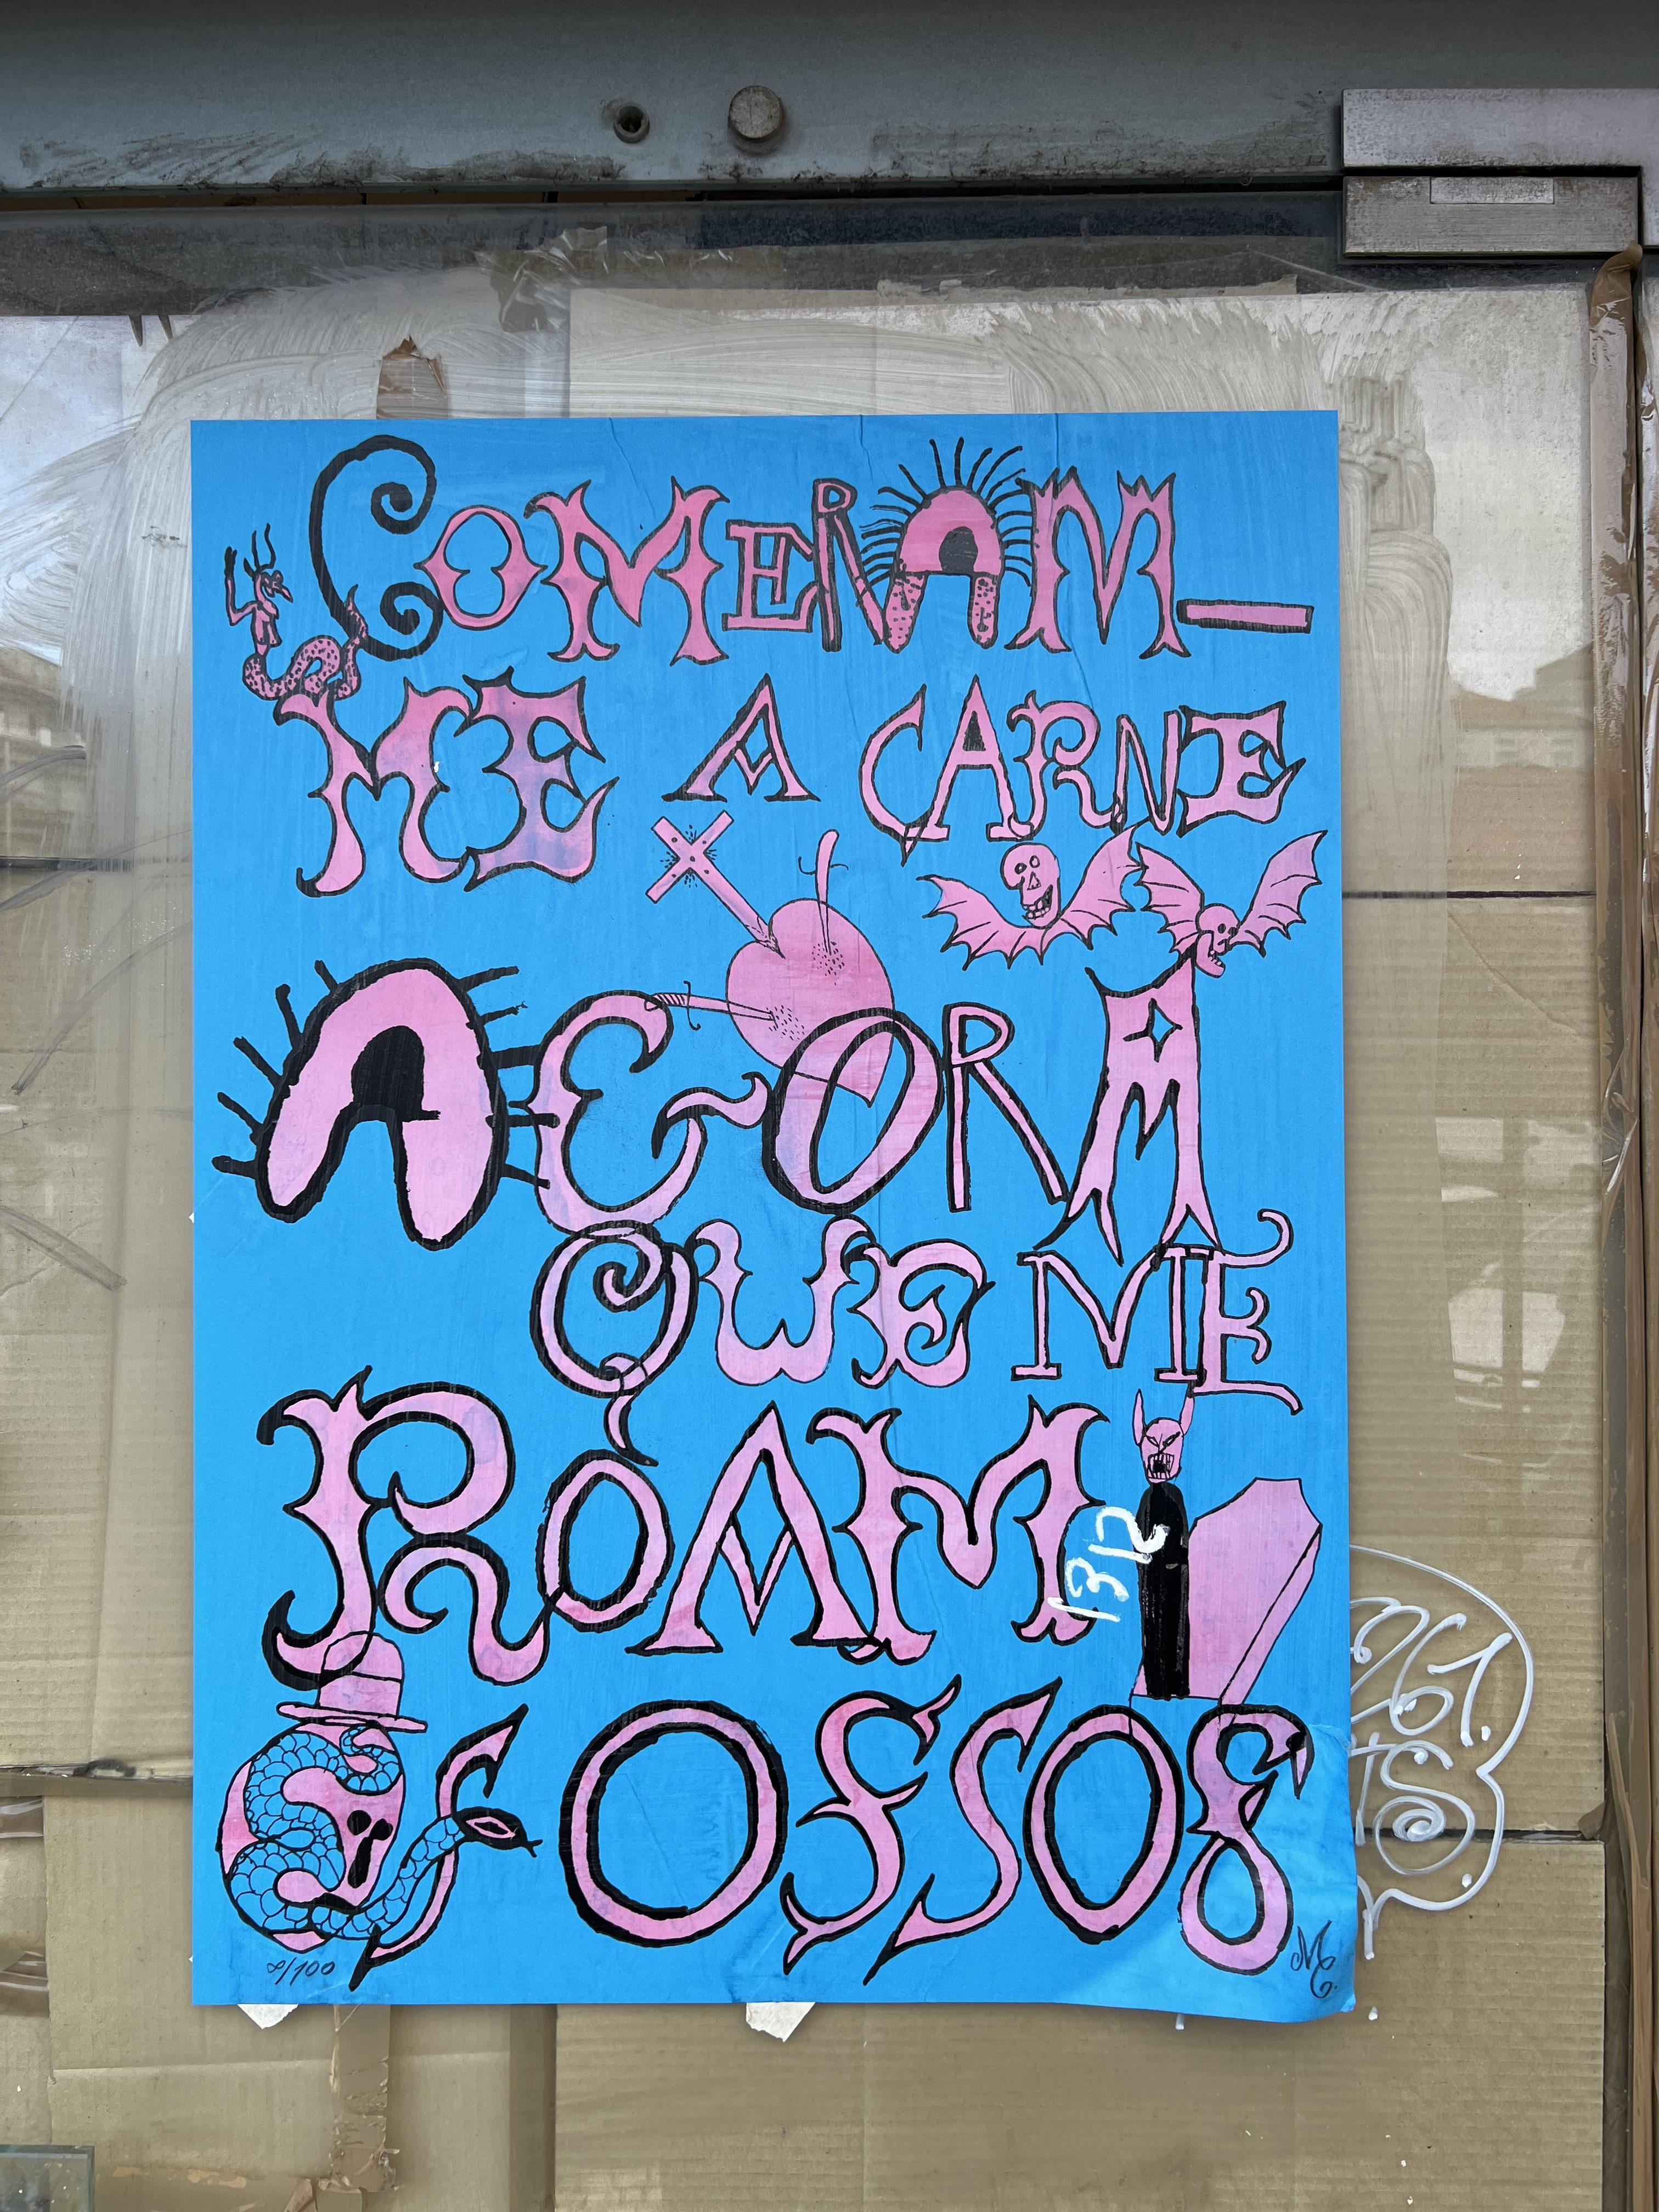 COMERAM-
ME A CARNE
AGORA
QUE ME
ROAM
1312
OS OSSOS
∞/100